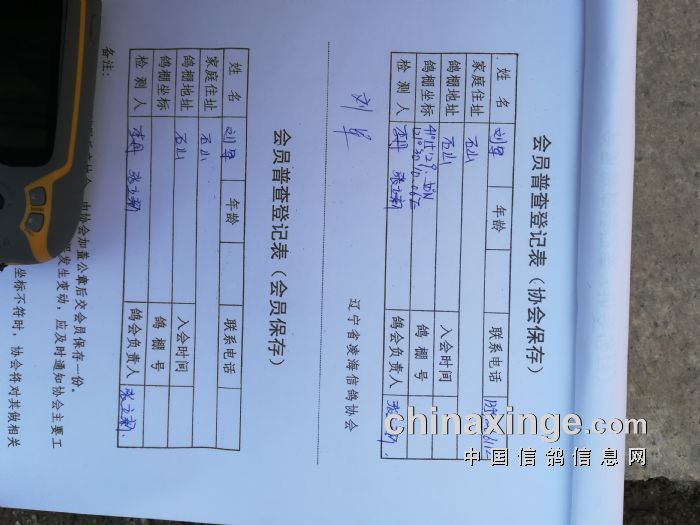 会员普查登记表（协会保存）
姓名 刘军 年龄 联系电话
家庭住址 石山
鸽棚地址 石山 入会时间
鸽棚坐标 鸽棚号
检测人 李丹 鸽会负责人
辽宁省凌海信鸽协会
刘军
会员普查登记表（会员保存）
姓名 刘军 年龄 联系电话
家庭住址 石山
鸽棚地址 石山 入会时间
鸽棚坐标 鸽棚号
检测人 李丹 鸽会负责人
备注：
由协会加盖公章后交会员保存一份。
发生变动，应及时通知协会主要工
坐标不符时，协会将对其做相关
chinaxinge.com
中国信鸽信息网